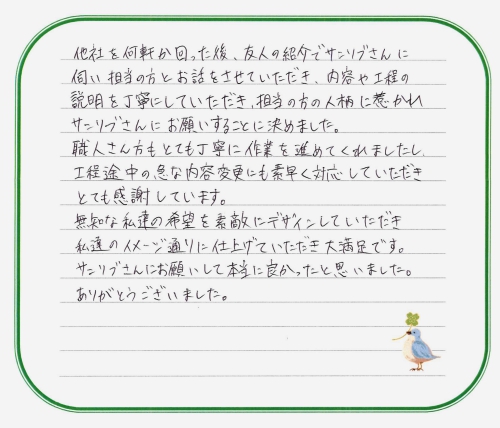 他社を何軒か回った後、友人の紹介でサンリブさんに
伺い担当の方とお話をさせていただき、内容や工程の
説明を丁寧にしていただき、担当の方の人柄に惹かれ
サンリブさんにお願いすることに決めました。
職人さん方もとても丁寧に作業を進めてくれましたし、
工程途中の急な内容変更にも素早く対応していただき
とても感謝しています。
無知な私達の希望を素敵にデザインしていただき
私達のイメージ通りに仕上げていただき大満足です。
サンリブさんにお願いして本当に良かったと思いました。
ありがとうございました。